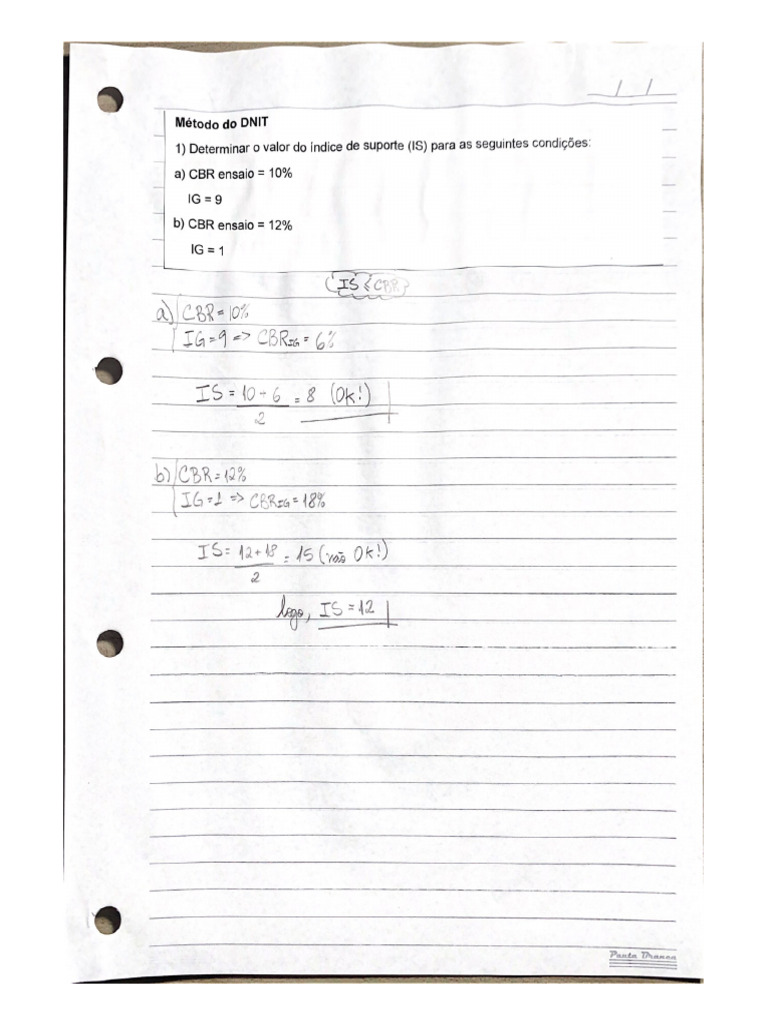 / /
Método do DNIT
1) Determinar o valor do índice de suporte (IS) para as seguintes condições:
a) CBR ensaio = 10%
IG = 9
b) CBR ensaio = 12%
IG = 1
IS ≤ CBR
a) CBR = 10%
IG = 9 => CBR_IG = 6%
IS = 10 + 6 = 8 (Ok!)
2
b) CBR = 12%
IG = 1 => CBR_IG = 18%
IS = 12 + 18 = 15 (não Ok!)
2
logo, IS = 12
Pauta Branca